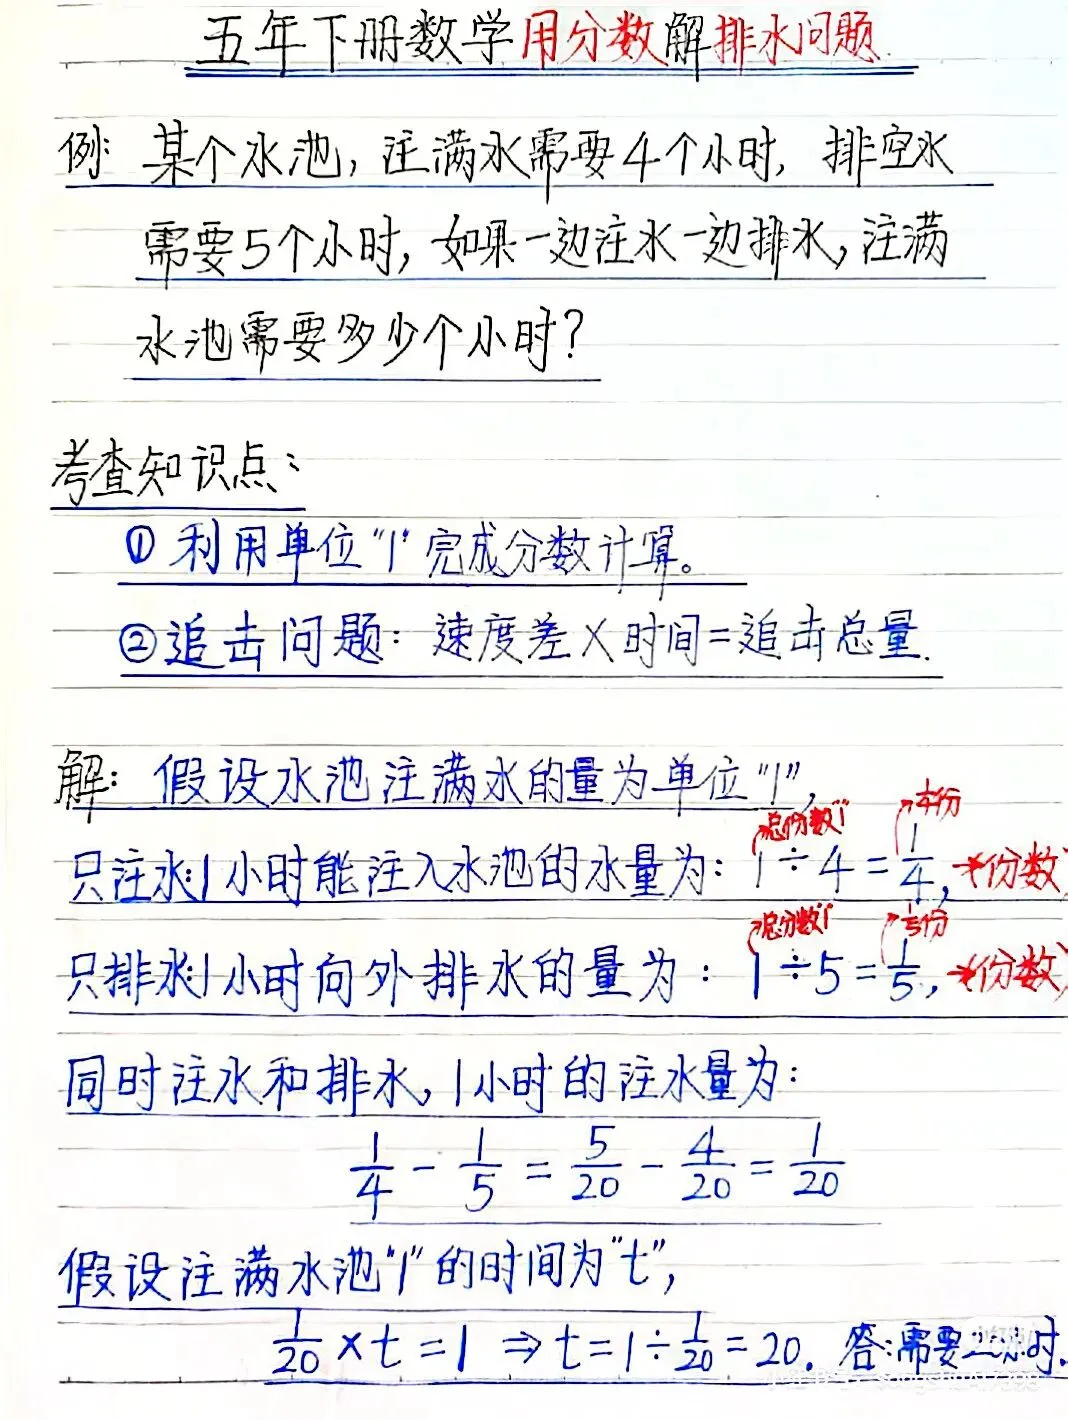 五年下册数学用分数解排水问题.
例: 某个水池, 注满水需要4个小时, 排空水
需要5个小时, 如果一边注水一边排水, 注满
水池需要多少个小时?
考查知识点:
① 利用单位"1"完成分数计算。
②追击问题: 速度差×时间=追击总量.
解: 假设水池注满水的量为单位"1",
总份数"1" 1/4份
只注水:1小时能注入水池的水量为: 1÷4=1/4, →份数
总分数"1" 1/5份
只排水:1小时向外排水的量为: 1÷5=1/5, →份数
同时注水和排水, 1小时的注水量为:
1/4 - 1/5 = 5/20 - 4/20 = 1/20
假设注满水池"1"的时间为"t",
1/20 × t = 1 ⇒ t = 1÷1/20 = 20. 答:需要时.